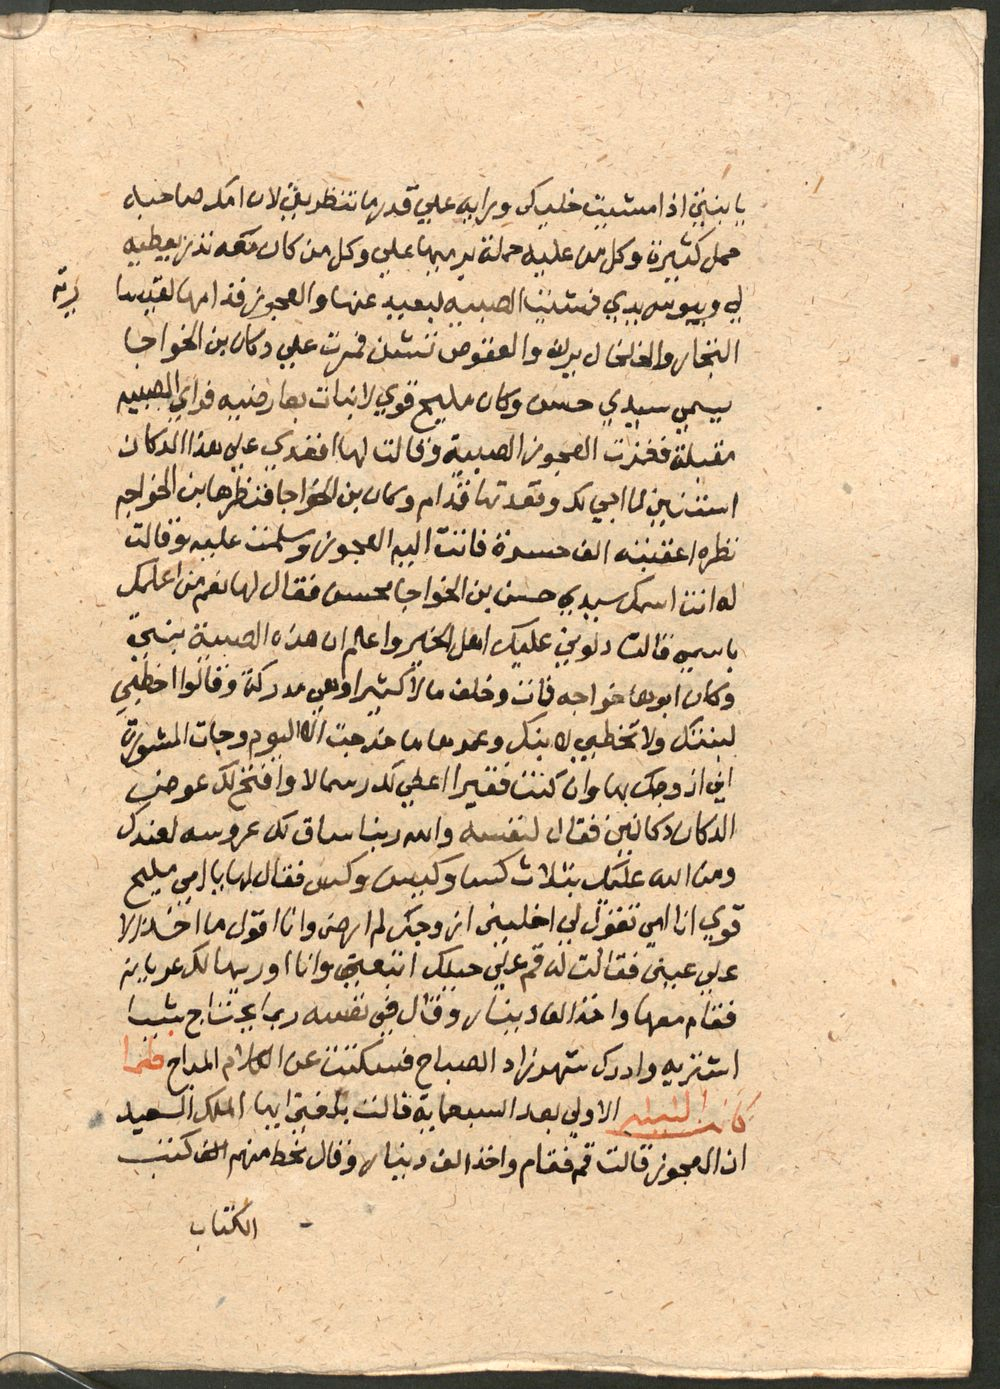 يا بنيتي اذا مشيتي خليكي ورايه علي قد رما تنظريني لان امك صاحبة
حمل كثيرة وكل من عليه حملة يرميها علي وكل من كان معه نذر يعطيه
لي ويبوس يدي فمشيت الصبيه لبعيد عنها والعجوز قدامها لقيسا
رية
التجار والخلخال يرن والعقوص تنشن فمرت علي دكان بن الخواجا
يسمي سيدي حسن وكان مليح قوي لا نبات بعارضيه فراي الصبيه
مقبلة فغمزت العجوز الصبية وقالت لها اقعدي علي هذا الدكان
استنيني لما اجي لك وقعدتها قدام دكان بن الخواجا فنظرها بن الخواجه
نظره اعقبته الف حسرة فاتت اليه العجوز وسلمت عليه وقالت
له انت اسمك سيدي حسن بن الخواجا محسن فقال لها نعم من اعلمك
باسمي قالت دلوني عليك اهل الخير واعلم ان هذه الصبية بنتي
وكان ابوها خواجه فات وخلف مالا كثيرا وهي مدركة وقالوا اخطبي
لبنتك ولا تخطبي لابنك وعمرها ما خرجت الا اليوم وجات المشورة
اني ازوجك بها وان كنت فقيرا اعطي لك رسمالا وافتح لك عوض
الدكان دكانين فقال لنفسه والله ربنا ساق لك عروسه لعندك
ومن الله عليك بتلات كسا وكيس وكس فقال لها يا امي مليح
قوي انا امي تقول لي اخليني ازوجك لم ارضي وانا اقول ما اخذ الا
علي عيني فقالت له قم علي حيلك اتبعني وانا اوريها لك عريانه
فقام معها واخذ الف دينار وقال في نفسه ربما يحتاج شيا
اشتريه وادرك شهرزاد الصباح فسكتت عن الكلام المباح فلما
كانت الليلة الاولي بعد السبعماية قالت بلغني ايها الملك السعيد
ان العجوز قالت قم فقام واخذ الف دينار وقال نحط منهم الف كتب
الكتاب